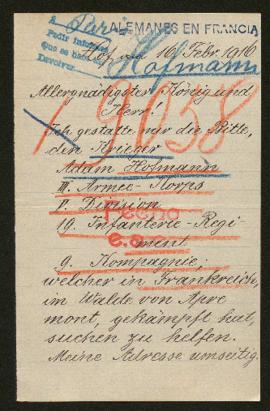 A Paris
ALEMANES EN FRANCIA
Pedir informes
que se hace
Devolver
Hof, 16 Febr. 1916
Hofmann
Allergnädigster König und
Herr!
9958
Ich gestatte mir die Bitte,
den Krieger
Adam Hofmann
III. Armee-Korps
V. Division
19. Infanterie-Regi
ment
Fecha
9. Kompagnie.
welcher in Frankreich,
im Walde von Apre
mont, gekämpft hat,
suchen zu helfen.
Meine Adresse umseitig.